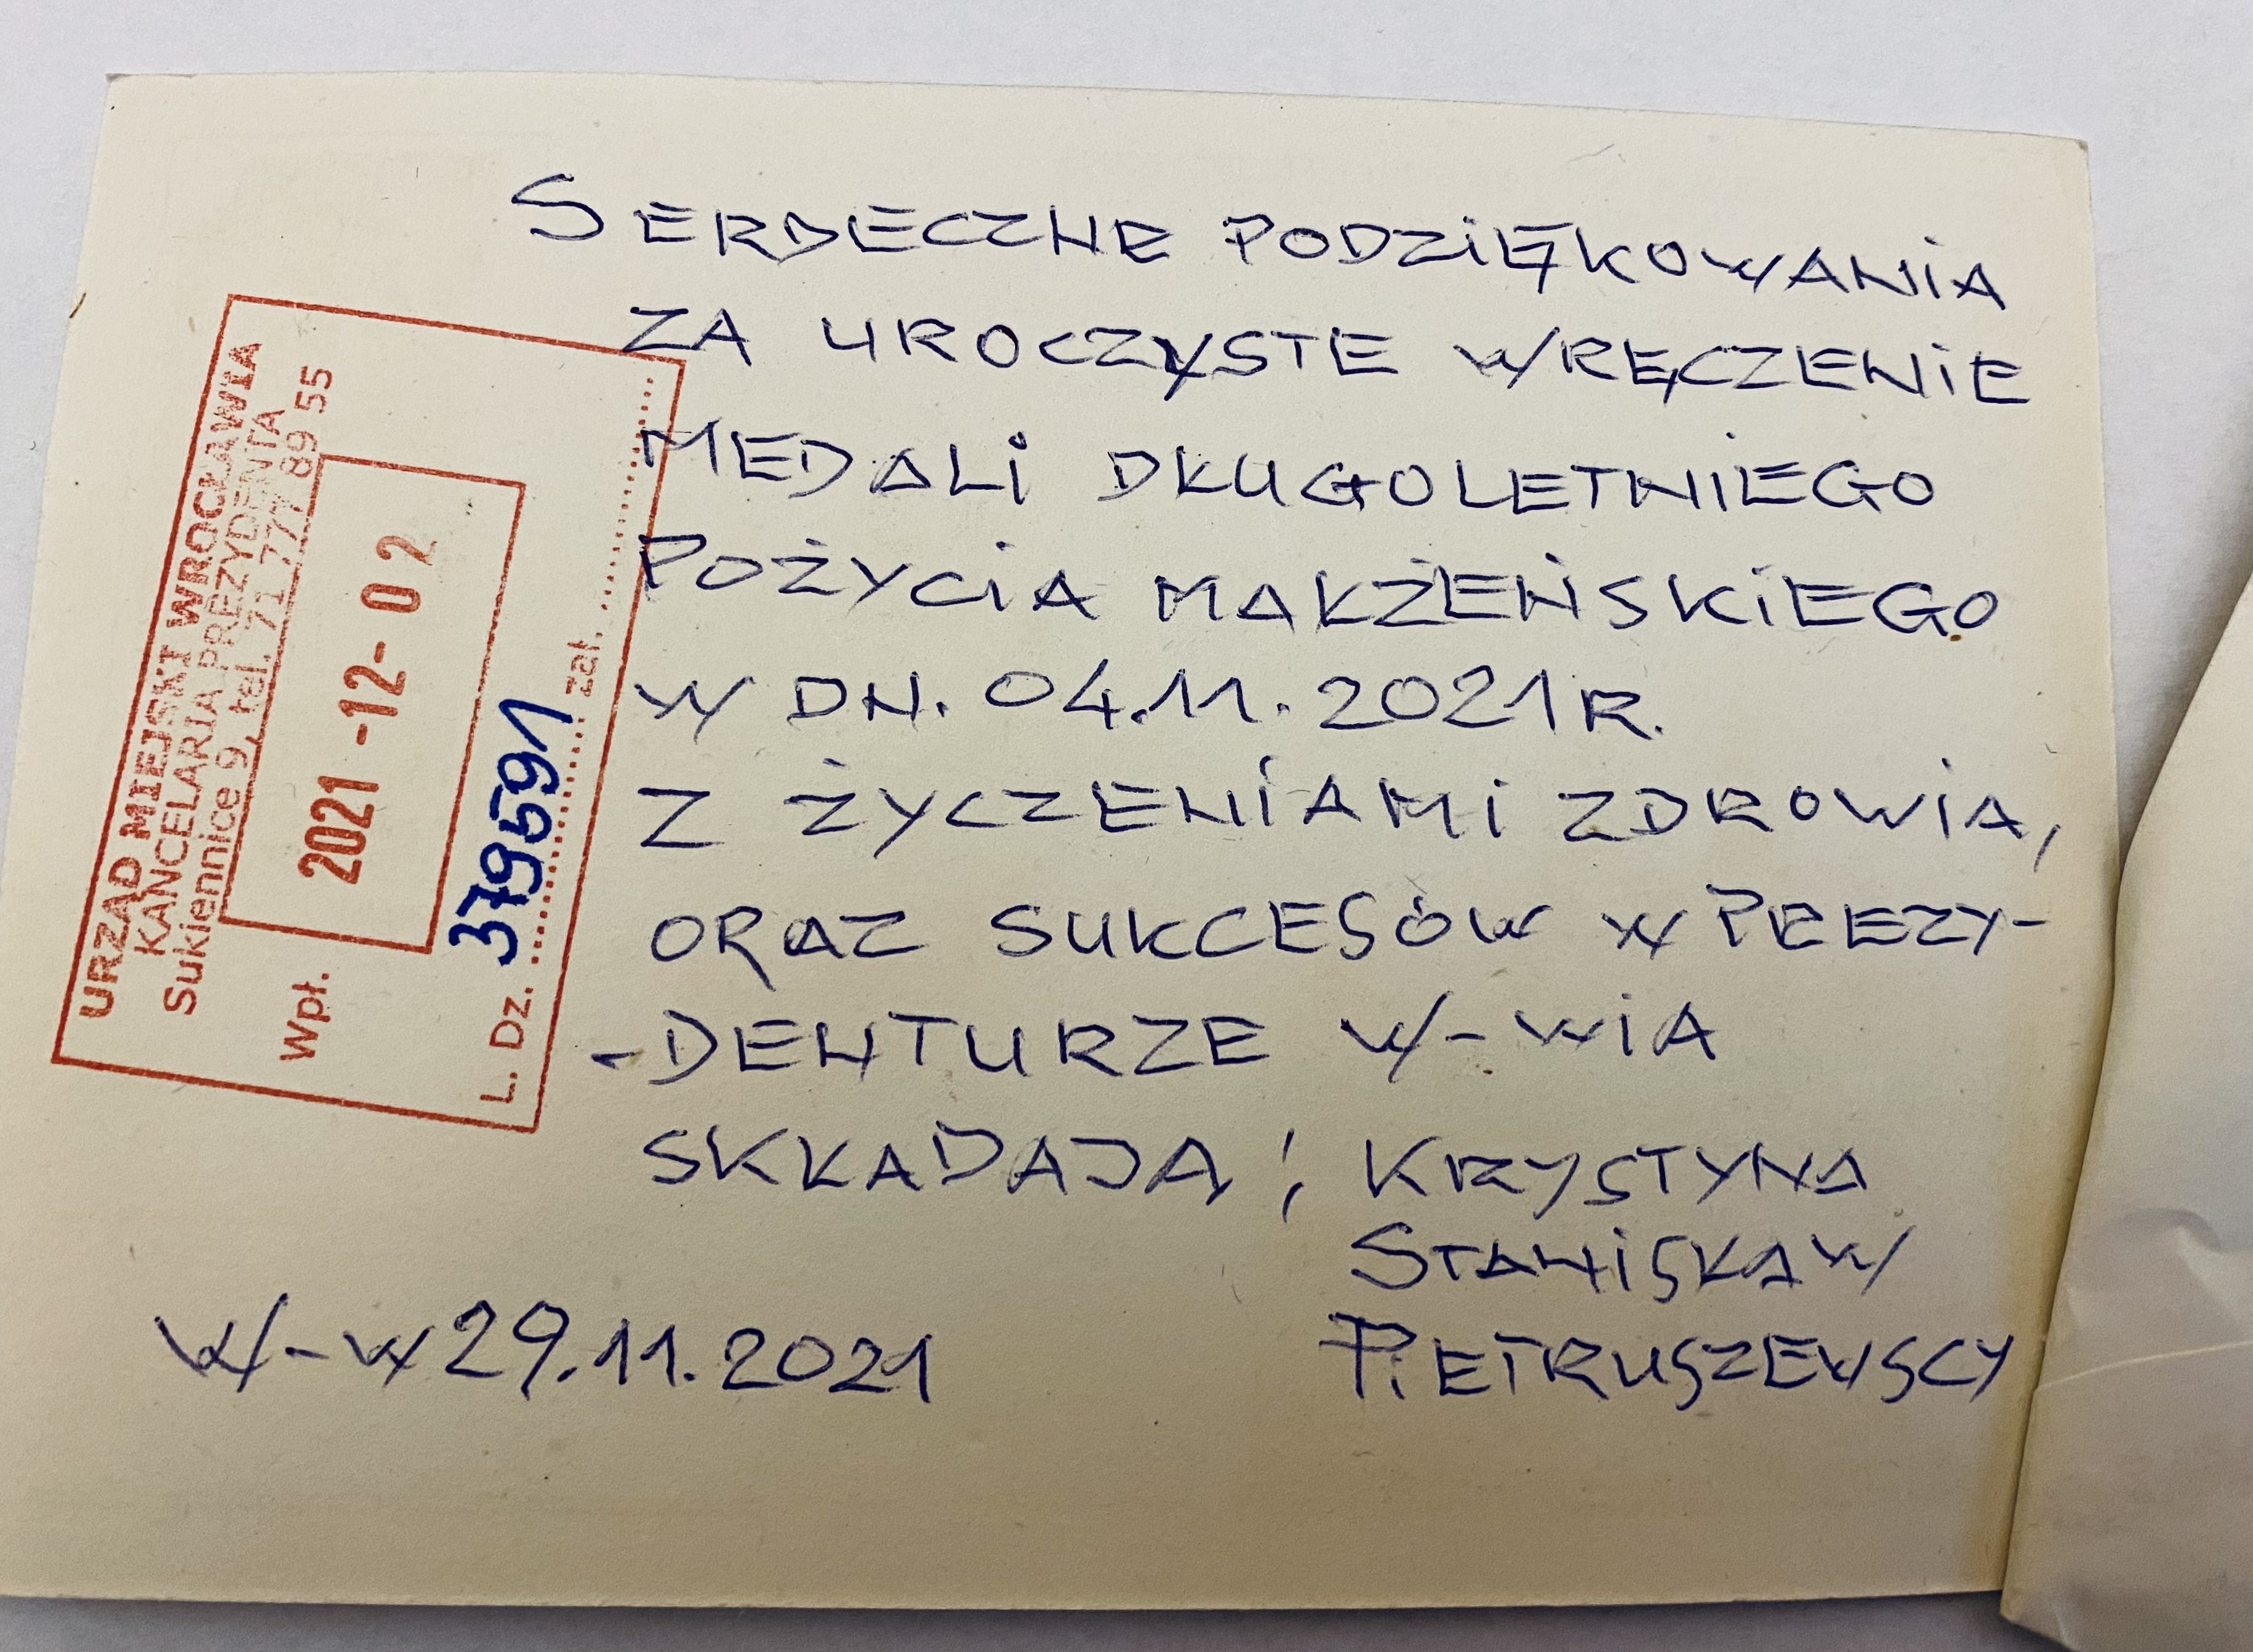 SERDECZNE PODZIĘKOWANIA
ZA UROCZYSTE WRĘCZENIE
MEDALI DŁUGOLETNIEGO
POŻYCIA MAŁŻEŃSKIEGO
W DN. 04.11.2021 R.
Z ŻYCZENIAMI ZDROWIA,
ORAZ SUKCESÓW W PREZY-
-DENTURZE W-WIA
SKŁADAJĄ; KRYSTYNA
STANISŁAW
PIETRUSZEWSCY
W-W 29.11.2021
URZĄD MIEJSKI WROCŁAWIA
KANCELARIA PREZYDENTA
Sukiennice 9, tel. 71 777 89 55
Wpł. 2021 -12- 02
L. Dz. 379591 zał.